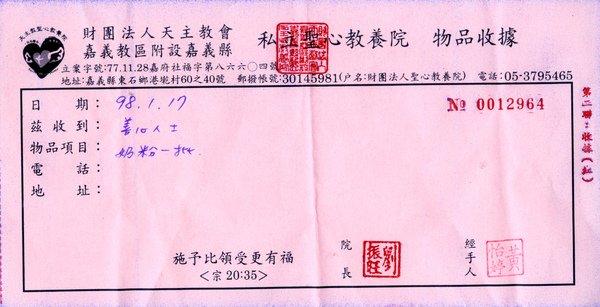 財團法人天主教會
嘉義教區附設嘉義縣
私立聖心教養院 物品收據
立案字號:77.11.28嘉府社福字第八六六〇四號
地址:嘉義縣東石鄉港墘村60之40號 郵撥帳號:30145981(户名:財團法人聖心教養院) 電話:05-3795465
日期: 98.1.17
No 0012964
茲收到: 善心人士
物品項目: 奶粉一批.
電話:
地址:
第二聯:收據(紅)
施予比領受更有福
<宗20:35>
院長
經手人